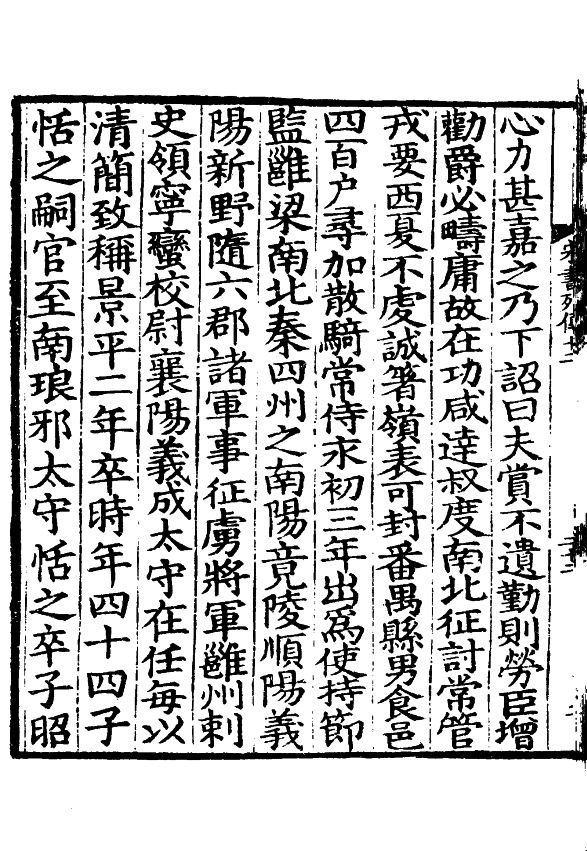 心力甚嘉之乃下詔曰夫賞不遺勤則勞臣增
勸爵必疇庸故在功咸達叔度南北征討常管
戎要西夏不虔誠箸嶺表可封番禺縣男食邑
四百户尋加散騎常侍永初三年出爲使持節
監雝梁南北秦四州之南陽竟陵順陽義
陽新野隨六郡諸軍事征虜將軍雝州刺
史領寧蠻校尉襄陽義成太守在任每以
清簡致稱景平二年卒時年四十四子
恬之嗣官至南琅邪太守恬之卒子昭